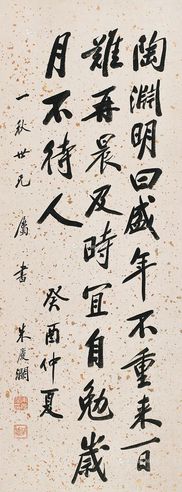 陶渊明曰盛年不重来一日
难再晨及時宜自勉歲
月不待人
癸酉仲夏
一秋世兄 屬書
朱慶瀾